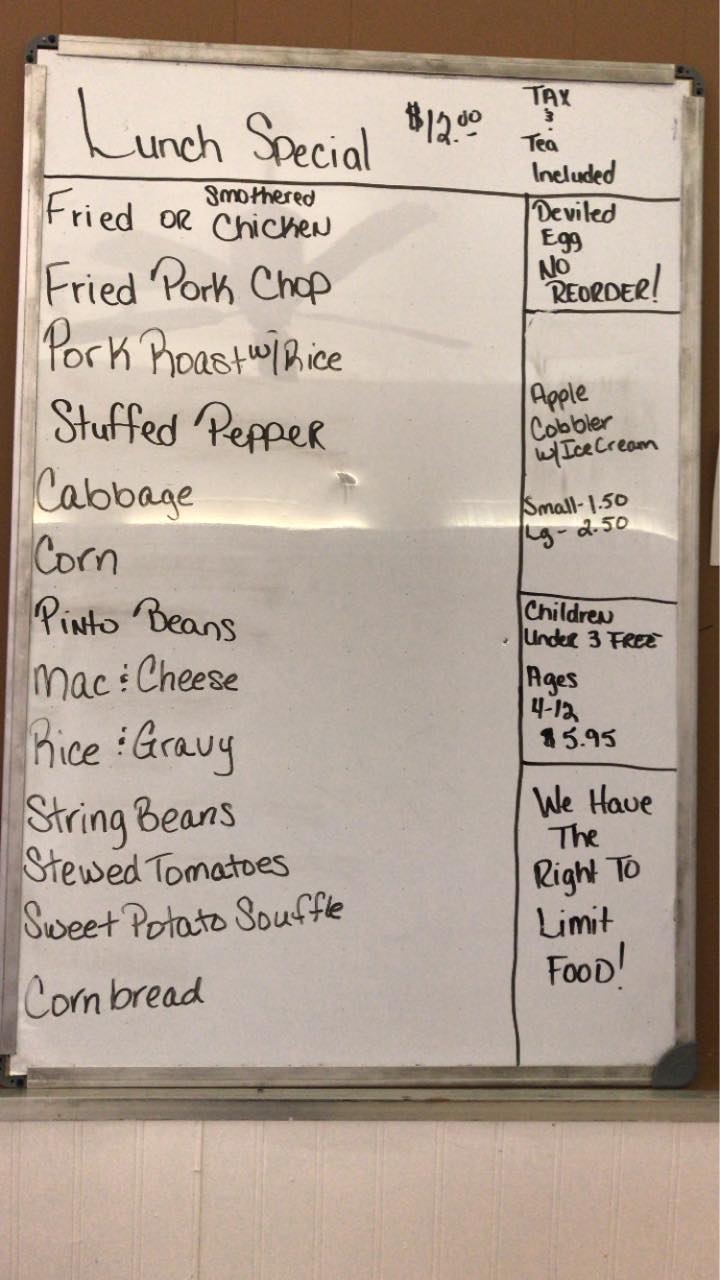 Lunch Special $12.00
TAX
&
Tea
Included
Smothered
Fried OR Chicken
Fried Pork Chop
Pork Roast w/Rice
Stuffed Pepper
Cabbage
Corn
Pinto Beans
Mac & Cheese
Rice & Gravy
String Beans
Stewed Tomatoes
Sweet Potato Souffle
Cornbread
Deviled
Egg
NO
REORDER!
Apple
Cobbler
w/Ice Cream
Small-1.50
Lg-2.50
Children
Under 3 FREE
Ages
4-12
$5.95
We Have
The
Right To
Limit
FOOD!